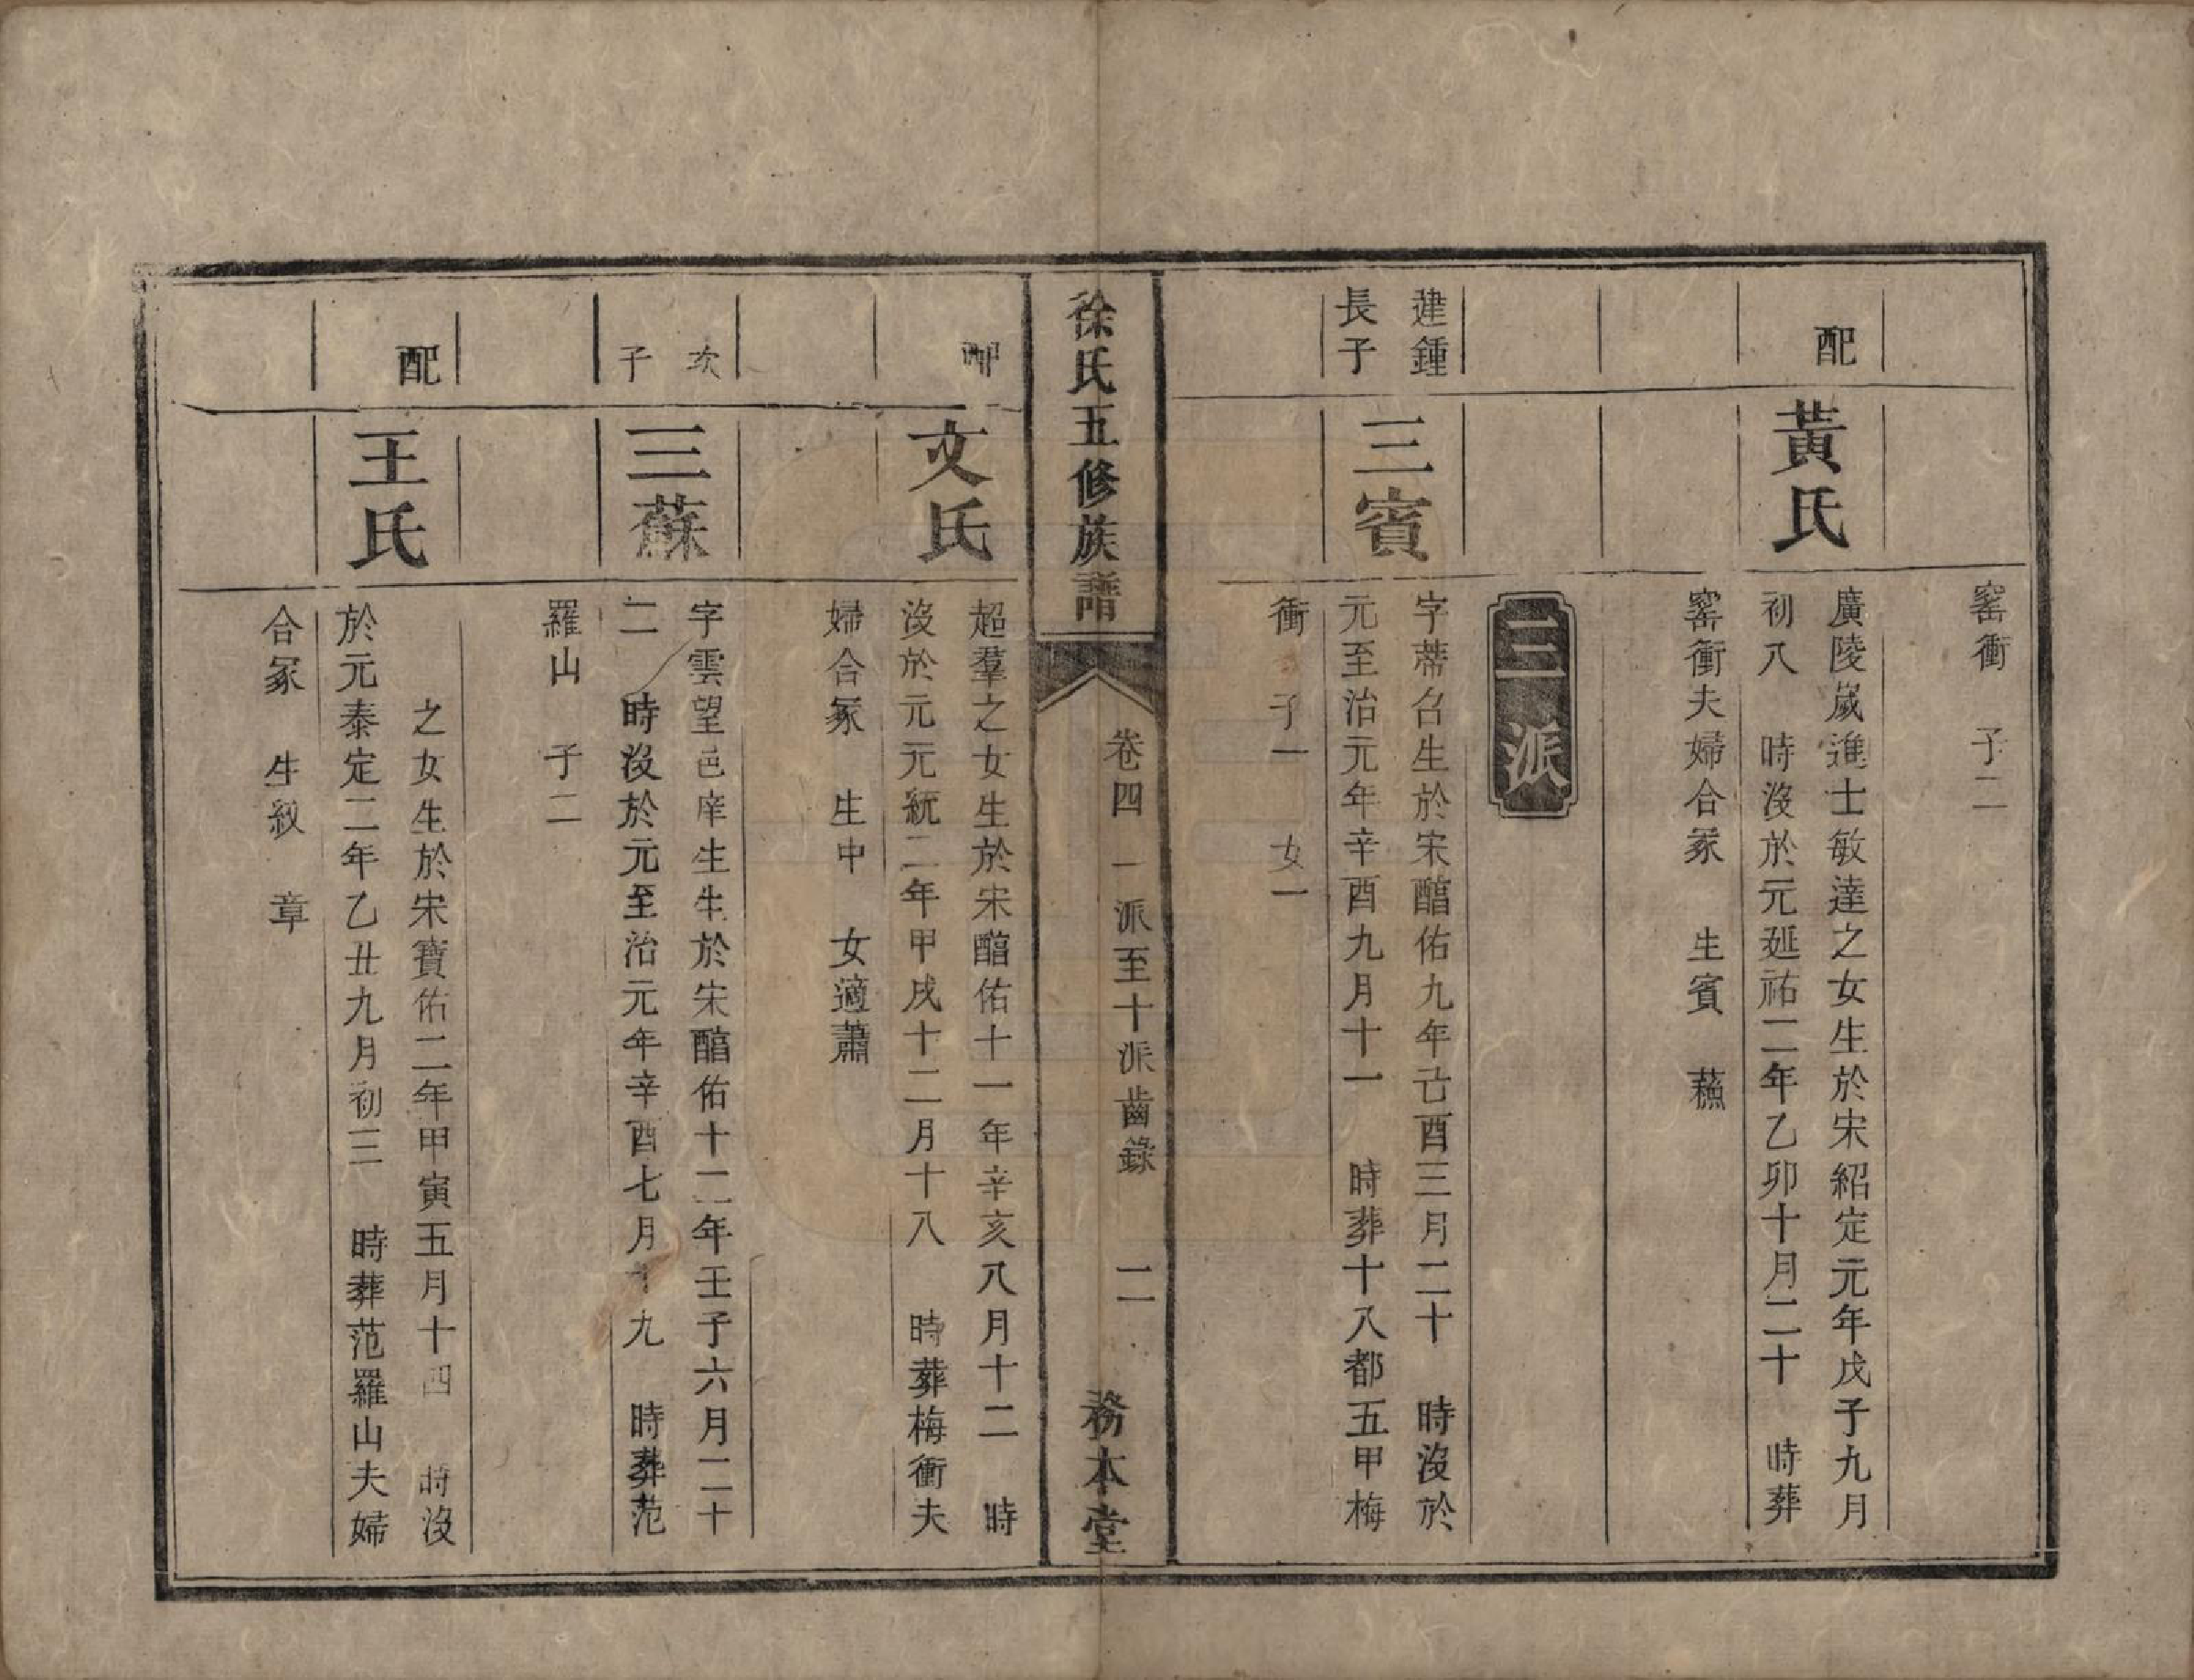 窰衝　子二
配
黃氏
廣陵歲進士敏達之女生於宋紹定元年戊子九月
初八　時沒於元延祐二年乙卯十月二十　時葬
窰衝夫婦合冢　生賓　蘓
三派
建鍾
長子
三賓
字蒂召生於宋醕佑九年己酉三月二十　時沒於
元至治元年辛酉九月十一　時葬十八都五甲梅
衝　子一　女一
徐氏五修族譜
卷四　一派至十派齒錄　二
務本堂
配
文氏
超羣之女生於宋醕佑十一年辛亥八月十二　時
沒於元元統二年甲戌十二月十八　時葬梅衝夫
婦合冢　生中　女適蕭
次
子
三蘇
字雲望邑庠生生於宋醕佑十二年壬子六月二十
二　時沒於元至治元年辛酉七月十九　時葬范
羅山　子二
配
王氏
之女生於宋寶佑二年甲寅五月十四　時沒
於元泰定二年乙丑九月初三　時葬范羅山夫婦
合冢　生紋　章